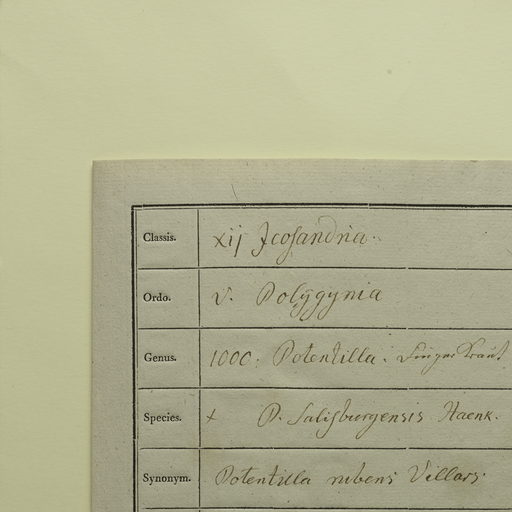 Classis. xij Icosandria.
Ordo. V. Polÿgynia
Genus. 1000. Potentilla. Finger Kraut
Species. + P. Salisburgensis Haenk.
Synonym. Potentilla rubens Villars.